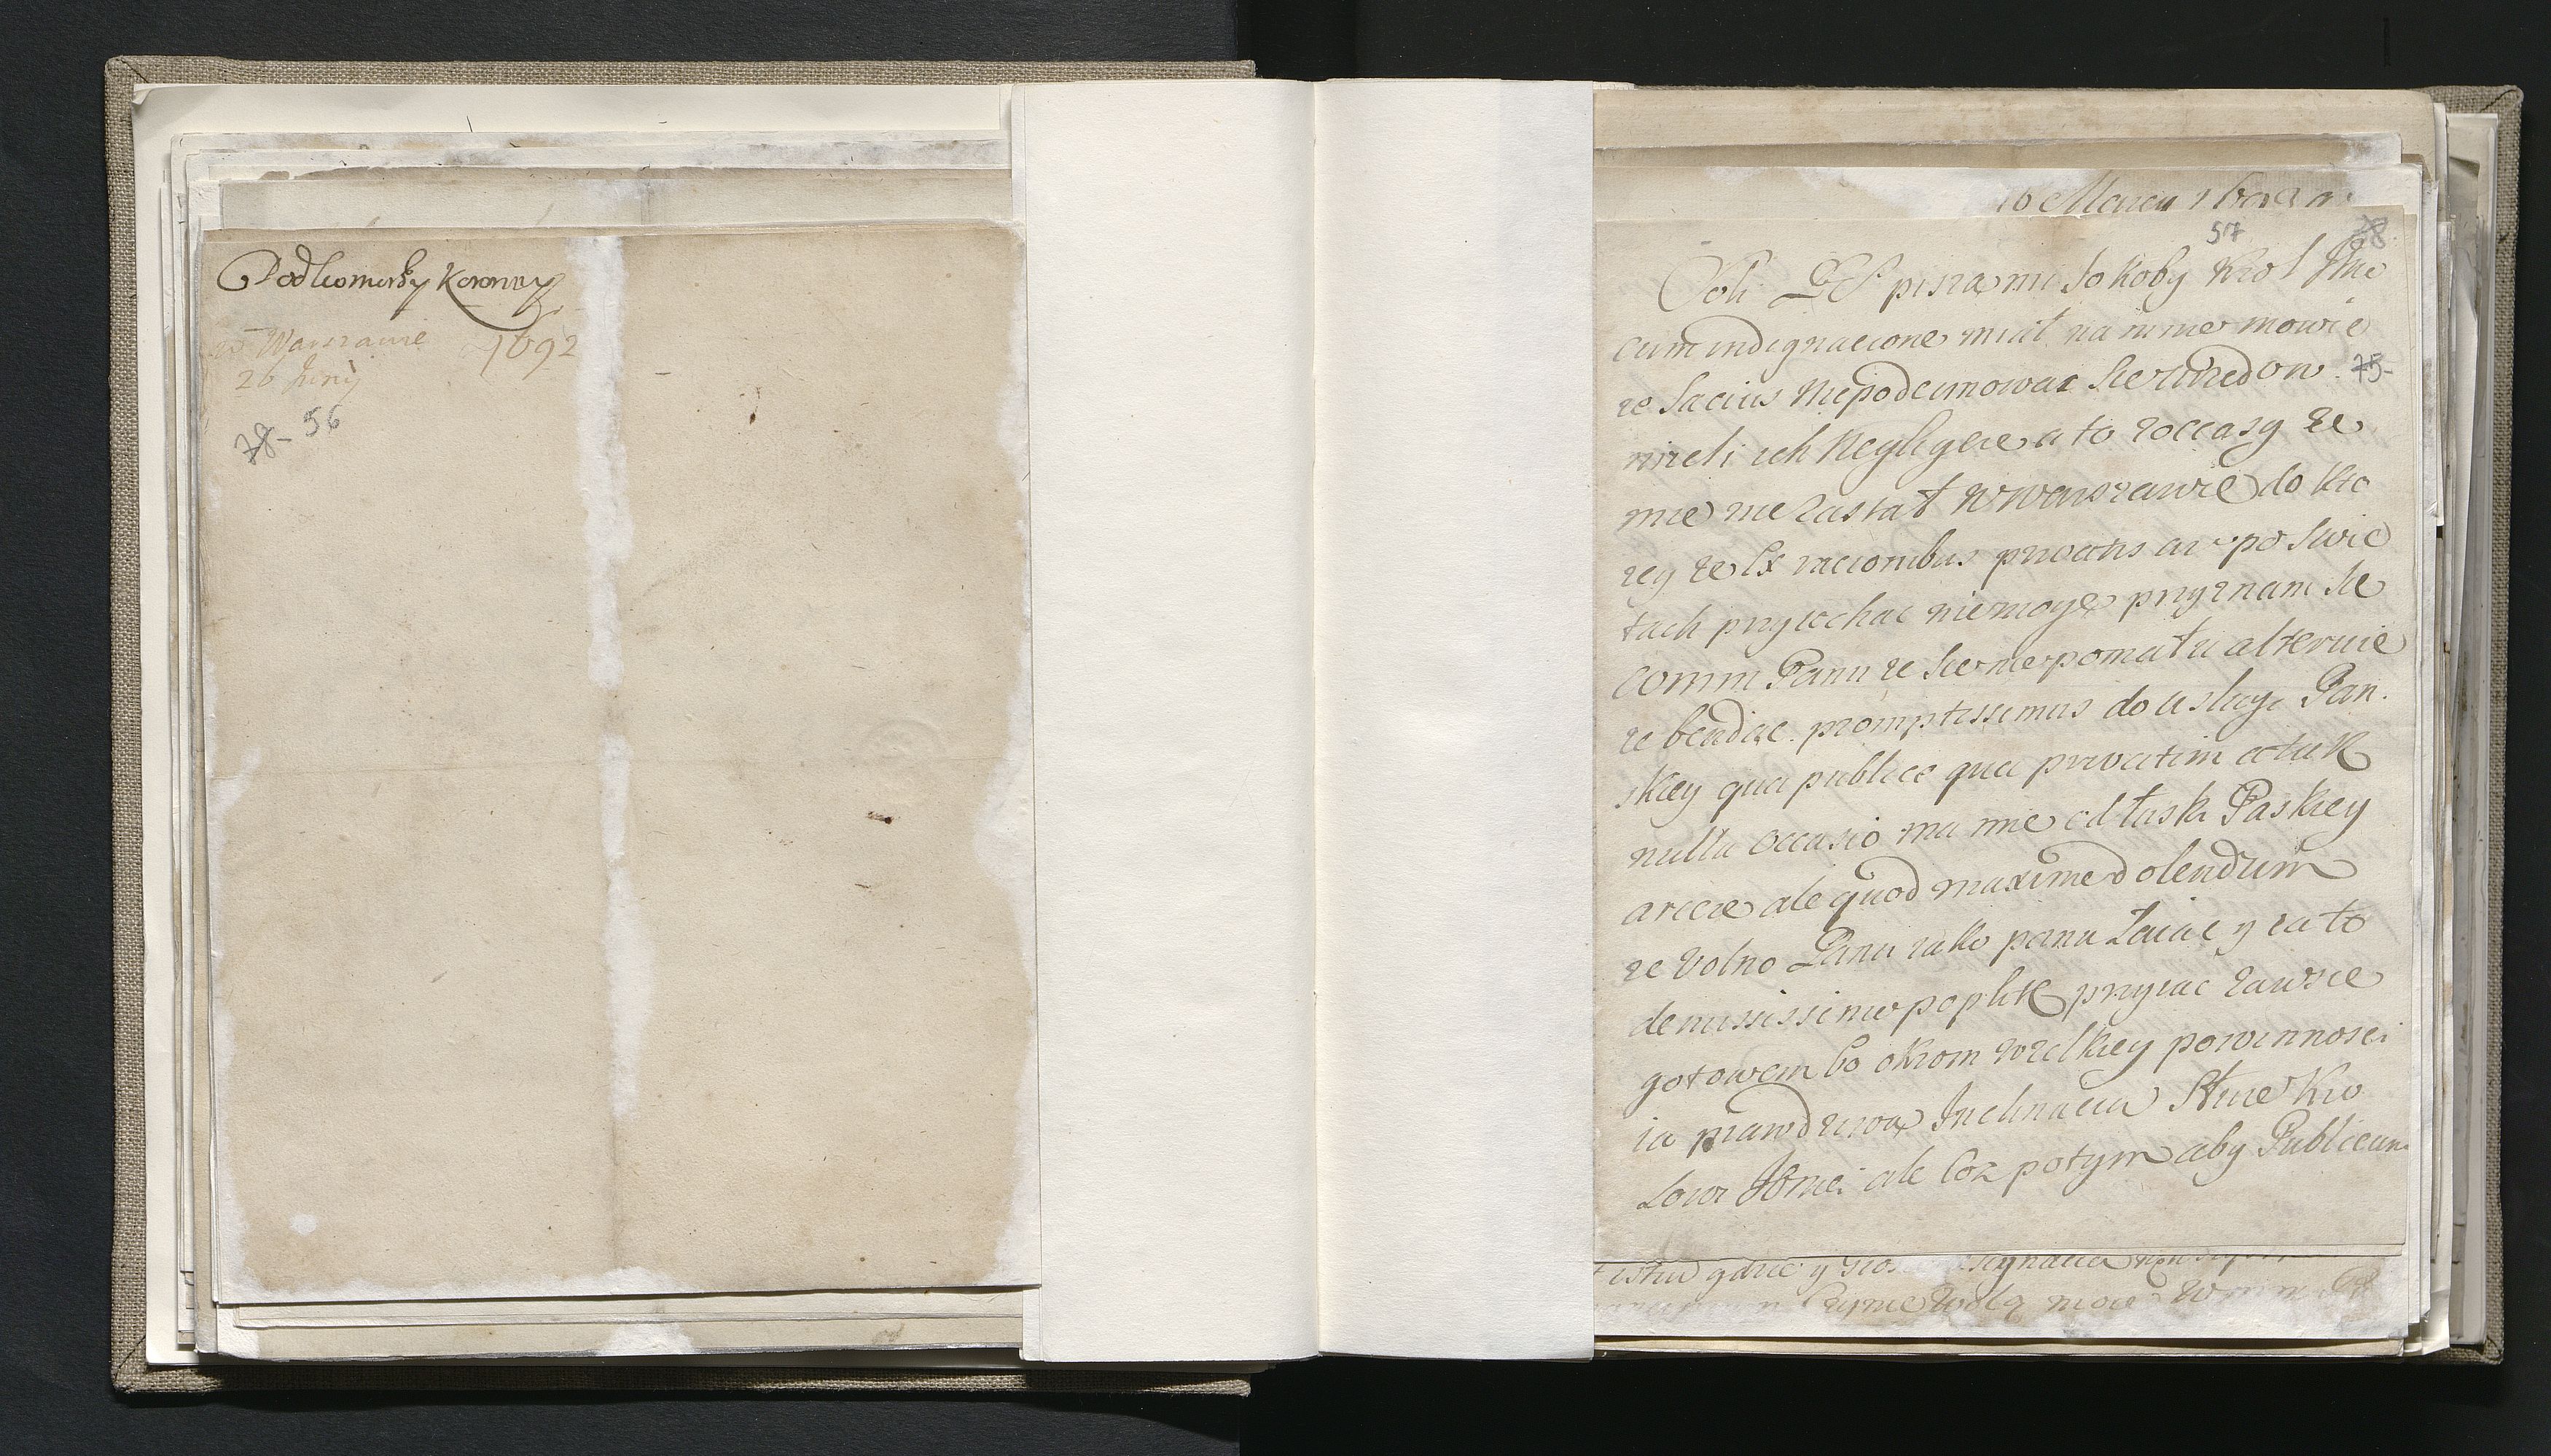 Podkomorzy Koronny
w Warszawie 1692
26 Juny
78- 56
16 Marca
57 78
Soli pisza mi Jakoby Krol Jmc
cum indignacione miał na mme mowic
ze Sacius Niepodeimowac sie Urzedow 75-
nizeli ich Negligere a to zoccasy ze
mie nie zastał w Warszawie do kto
rey ze Ex racionibus privatis az po swie
tach przyiechac niemoge przyznam sie
comm Panu ze sie nie pomału alteruie
ze bendac promptissimus do usługi Pan.
skiey qua publice qua privatim a tak
nulla occasio ma mie od łaski Paskiey
arcere ale quod maxime dolendum
ze Volno Panu iako panu Łaiac y ia to
demississimo poplite przyiac zawsze
gotowem bo okrom wzelkiey powinnosci
ia prawdziwa Inclinacia Słuze Kro
Lowi Jkmci ale Coz potym aby Publicum
gdzie y